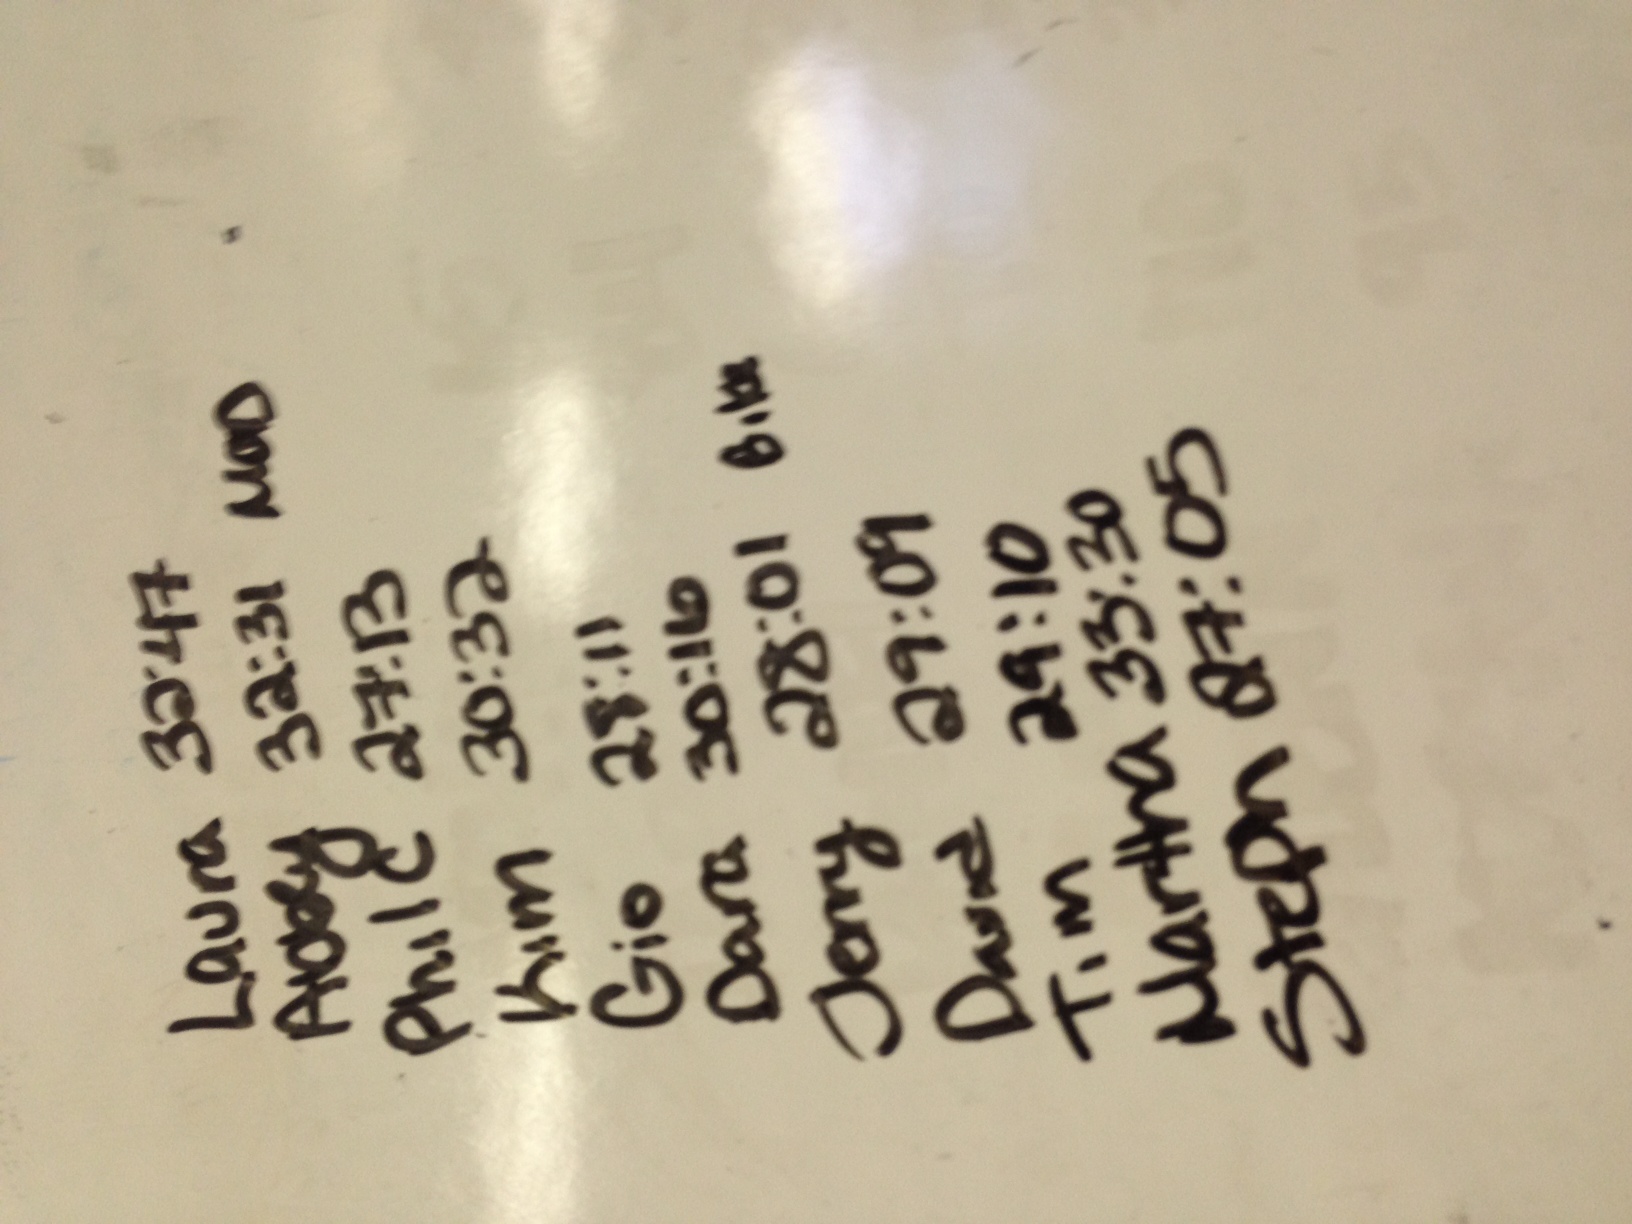 Laura 32:47
Abbey 32:31 MOD
Phil C 27:13
Kim 30:32
Gio 28:11
Dara 30:16
Jerry 28:01 Bike
David 29:09
Tim 29:10
Martha 33:30
Steph 27:05